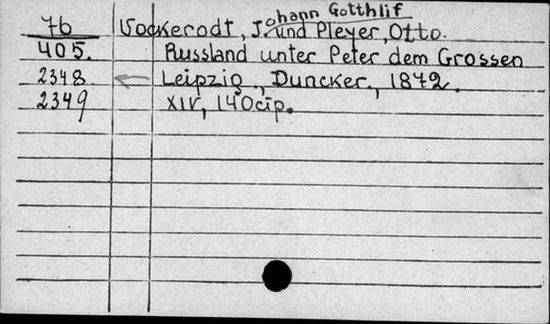 76 Vockerodt, Johann Gotthlif und Pleyer, Otto.
405. Russland unter Peter dem Grossen
2348 ← Leipzig, Duncker, 1872.
2349 XIV, 140